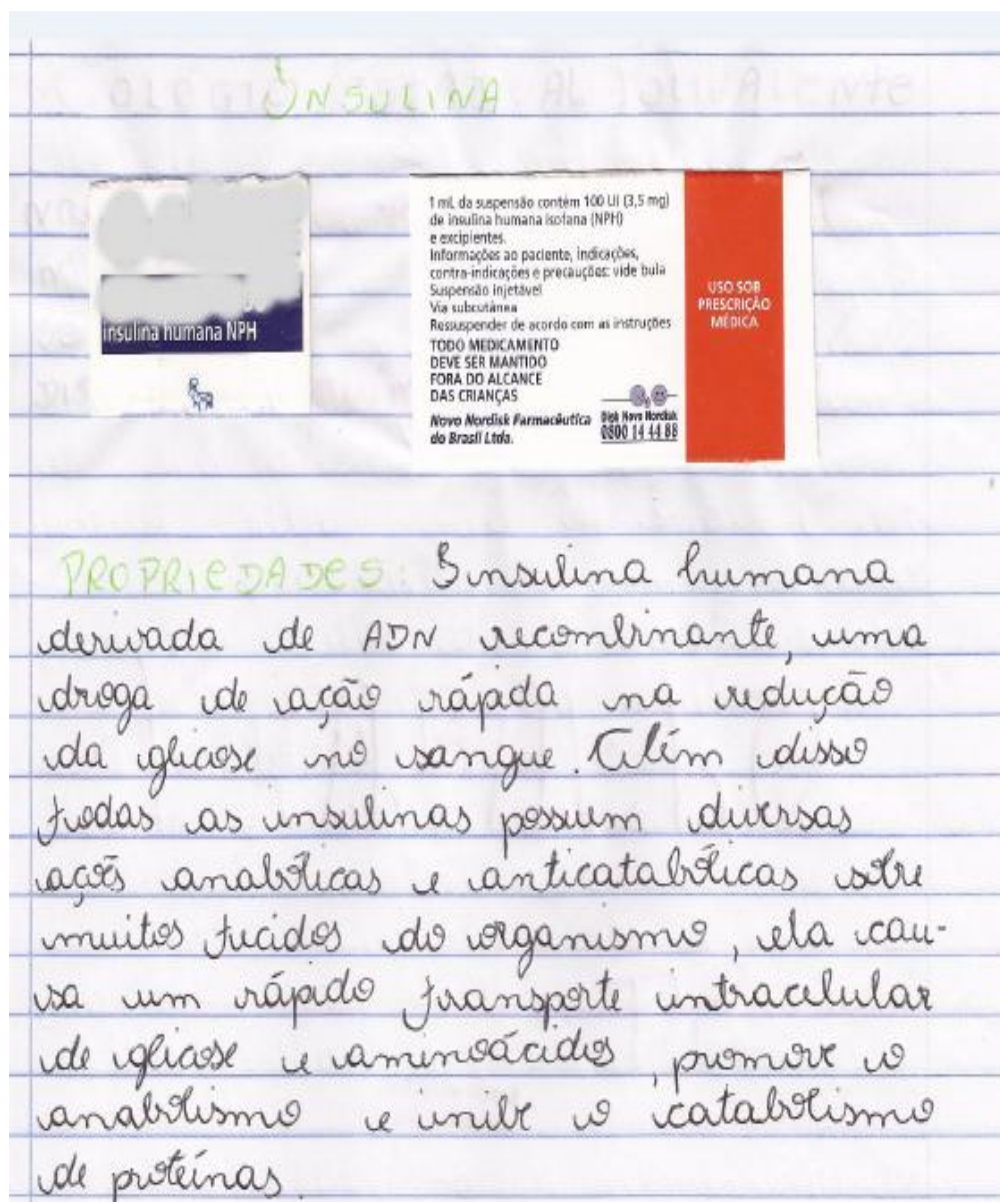 INSULINA
insulina humana NPH
1 mL da suspensão contém 100 UI (3,5 mg)
de insulina humana isofana (NPH)
e excipientes.
Informações ao paciente, indicações,
contra-indicações e precauções: vide bula
Suspensão injetável
Via subcutânea
Ressuspender de acordo com as instruções
TODO MEDICAMENTO
DEVE SER MANTIDO
FORA DO ALCANCE
DAS CRIANÇAS
Novo Nordisk Farmacêutica
do Brasil Ltda.
Disk Novo Nordisk
0800 14 44 88
USO SOB
PRESCRIÇÃO
MÉDICA
PROPRIEDADES: Insulina humana
derivada de ADN recombinante, uma
droga de ação rápida na redução
da glicose no sangue. Além disso
todas as insulinas possuem diversas
ações anabólicas e anticatabólicas sobre
muitos tucidos do organismo, ela cau-
sa um rápido transporte intracelular
de glicose e aminoácidos, promove o
anabolismo e inibe o catabolismo
de proteínas.